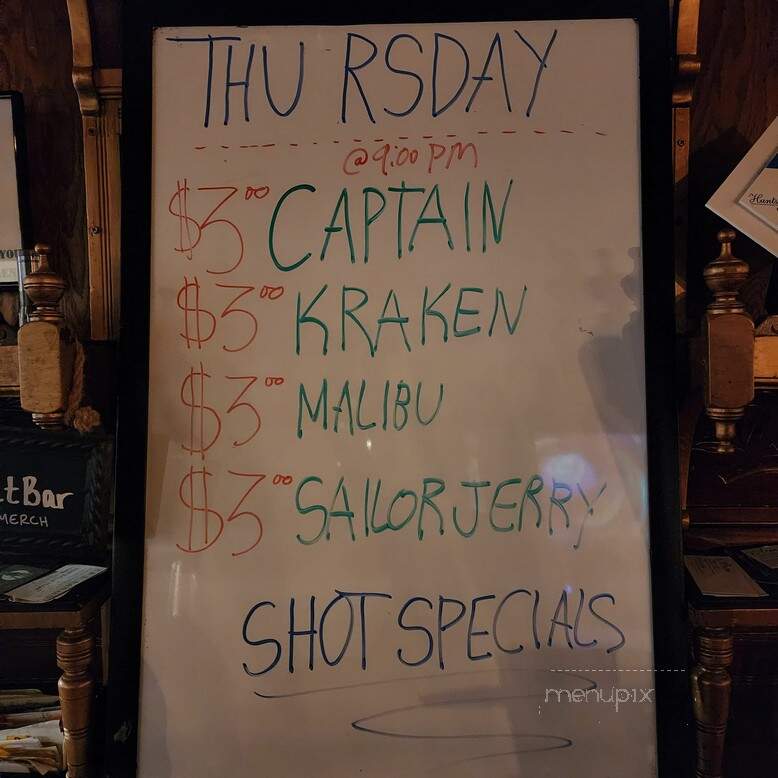 THURSDAY
@9:00 PM
$3.00 CAPTAIN
$3.00 KRAKEN
$3.00 MALIBU
$3.00 SAILOR JERRY
SHOT SPECIALS
tBar
MERCH
menupix